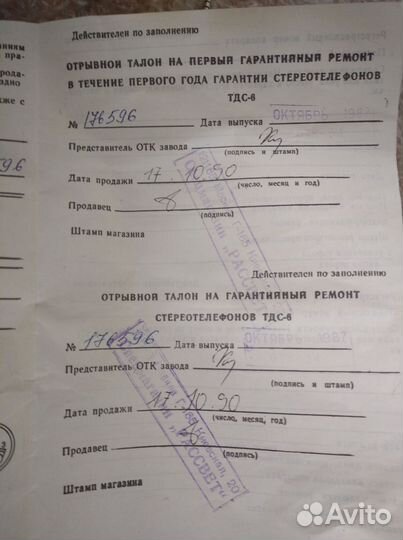 Действителен по заполнению
ОТРЫВНОЙ ТАЛОН НА ПЕРВЫЙ ГАРАНТИЙНЫЙ РЕМОНТ
В ТЕЧЕНИЕ ПЕРВОГО ГОДА ГАРАНТИИ СТЕРЕОТЕЛЕФОНОВ
ТДС-6
№ 176596 Дата выпуска ОКТЯБРЬ
Представитель ОТК завода
(подпись и штамп)
Дата продажи 17.10.90
(число, месяц и год)
Продавец
(подпись)
Штамп магазина
"РАССВЕТ"
Действителен по заполнению
ОТРЫВНОЙ ТАЛОН НА ГАРАНТИЙНЫЙ РЕМОНТ
СТЕРЕОТЕЛЕФОНОВ ТДС-6
№ 176596 Дата выпуска ОКТЯБРЬ 1987
Представитель ОТК завода
(подпись и штамп)
Дата продажи 17.10.90
(число, месяц, год)
Продавец
(подпись)
Штамп магазина
Г-165 Киевская, 20
"РАССВЕТ"
Avito